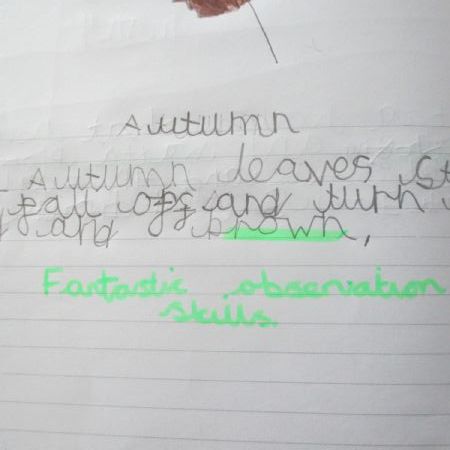 Autumn
Autumn leaves st
fall off and turn
and brown.
Fantastic observation
skills.